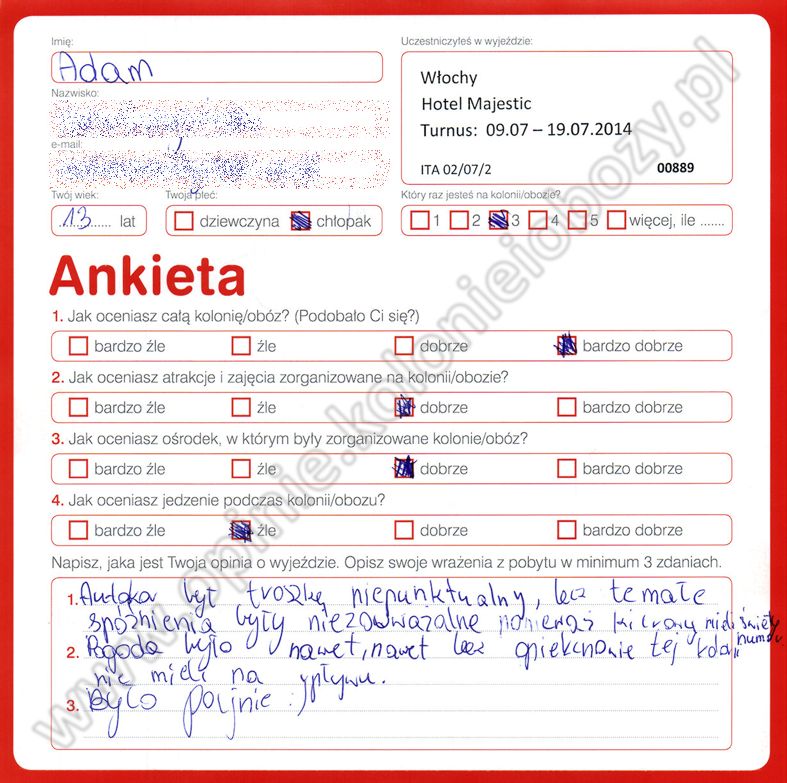 Imię:
Adam
Nazwisko:
e-mail:
Twój wiek:
13 lat
Twoja płeć:
dziewczyna chłopak
Uczestniczyłeś w wyjeździe:
Włochy
Hotel Majestic
Turnus: 09.07 – 19.07.2014
ITA 02/07/2 00889
Który raz jesteś na kolonii/obozie?
1 2 3 4 5 więcej, ile .......
Ankieta
1. Jak oceniasz całą kolonię/obóz? (Podobało Ci się?)
bardzo źle źle dobrze bardzo dobrze
2. Jak oceniasz atrakcje i zajęcia zorganizowane na kolonii/obozie?
bardzo źle źle dobrze bardzo dobrze
3. Jak oceniasz ośrodek, w którym były zorganizowane kolonie/obóz?
bardzo źle źle dobrze bardzo dobrze
4. Jak oceniasz jedzenie podczas kolonii/obozu?
bardzo źle źle dobrze bardzo dobrze
Napisz, jaka jest Twoja opinia o wyjeździe. Opisz swoje wrażenia z pobytu w minimum 3 zdaniach.
1. był troszkę niepunktualny, lecz te małe
spóźnienia były niezauważalne ponieważ mieli
2. Pogoda było nawet, nawet lecz opiekunowie tej
nie mieli na wpływu.
3. Było fajnie :)
www.opinie.kolonieiobozy.pl